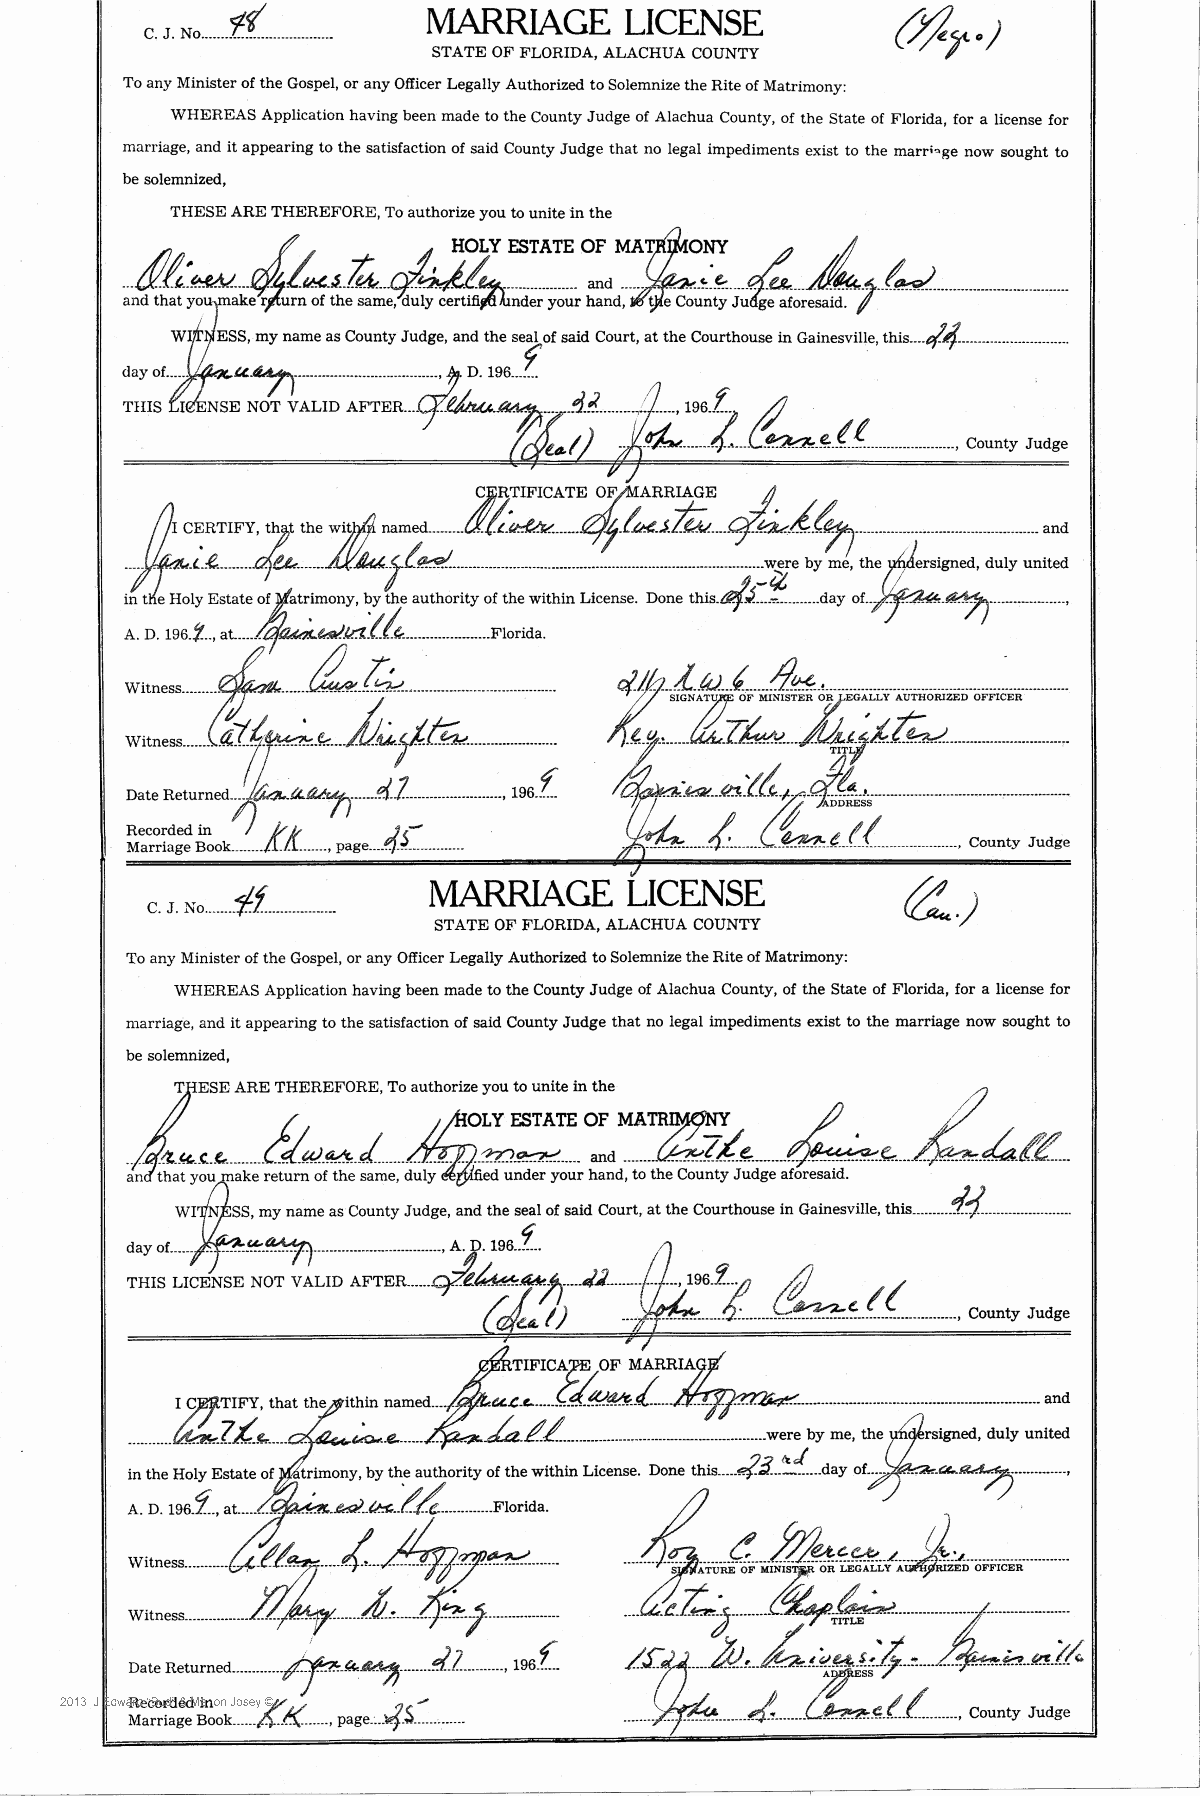 C. J. No. 48
MARRIAGE LICENSE
(Negro)
STATE OF FLORIDA, ALACHUA COUNTY
To any Minister of the Gospel, or any Officer Legally Authorized to Solemnize the Rite of Matrimony:
WHEREAS Application having been made to the County Judge of Alachua County, of the State of Florida, for a license for
marriage, and it appearing to the satisfaction of said County Judge that no legal impediments exist to the marriage now sought to
be solemnized,
THESE ARE THEREFORE, To authorize you to unite in the
HOLY ESTATE OF MATRIMONY
Oliver Sylvester Finkley and Janie Lee Douglas
and that you make return of the same, duly certified under your hand, to the County Judge aforesaid.
WITNESS, my name as County Judge, and the seal of said Court, at the Courthouse in Gainesville, this 22
day of January, A. D. 1969
THIS LICENSE NOT VALID AFTER February 22, 1969
(Seal) John L. Connell, County Judge
CERTIFICATE OF MARRIAGE
I CERTIFY, that the within named Oliver Sylvester Finkley and
Janie Lee Douglas were by me, the undersigned, duly united
in the Holy Estate of Matrimony, by the authority of the within License. Done this 25th day of January,
A. D. 1969, at Gainesville Florida.
Witness Sam Austin
211 N W 6 Ave.
SIGNATURE OF MINISTER OR LEGALLY AUTHORIZED OFFICER
Witness Catherine Wrighten
Rev. Arthur Wrighten
TITLE
Date Returned January 27, 1969
Gainesville, Fla.
ADDRESS
Recorded in
Marriage Book KK, page 25
John L. Connell, County Judge
C. J. No. 49
MARRIAGE LICENSE
(Cau.)
STATE OF FLORIDA, ALACHUA COUNTY
To any Minister of the Gospel, or any Officer Legally Authorized to Solemnize the Rite of Matrimony:
WHEREAS Application having been made to the County Judge of Alachua County, of the State of Florida, for a license for
marriage, and it appearing to the satisfaction of said County Judge that no legal impediments exist to the marriage now sought to
be solemnized,
THESE ARE THEREFORE, To authorize you to unite in the
HOLY ESTATE OF MATRIMONY
Bruce Edward Hoffman and Anthe Louise Randall
and that you make return of the same, duly certified under your hand, to the County Judge aforesaid.
WITNESS, my name as County Judge, and the seal of said Court, at the Courthouse in Gainesville, this 22
day of January, A. D. 1969
THIS LICENSE NOT VALID AFTER February 22, 1969
(Seal) John L. Connell, County Judge
CERTIFICATE OF MARRIAGE
I CERTIFY, that the within named Bruce Edward Hoffman and
Anthe Louise Randall were by me, the undersigned, duly united
in the Holy Estate of Matrimony, by the authority of the within License. Done this 23rd day of January,
A. D. 1969, at Gainesville Florida.
Witness Allan L. Hoffman
Roy C. Mercer, Jr.,
SIGNATURE OF MINISTER OR LEGALLY AUTHORIZED OFFICER
Witness Mary W. King
Acting Chaplain
TITLE
Date Returned January 27, 1969
1522 W. University - Gainesville
ADDRESS
2013 J Edward Josey ©
Recorded in
Marriage Book KK, page 25
John L. Connell, County Judge